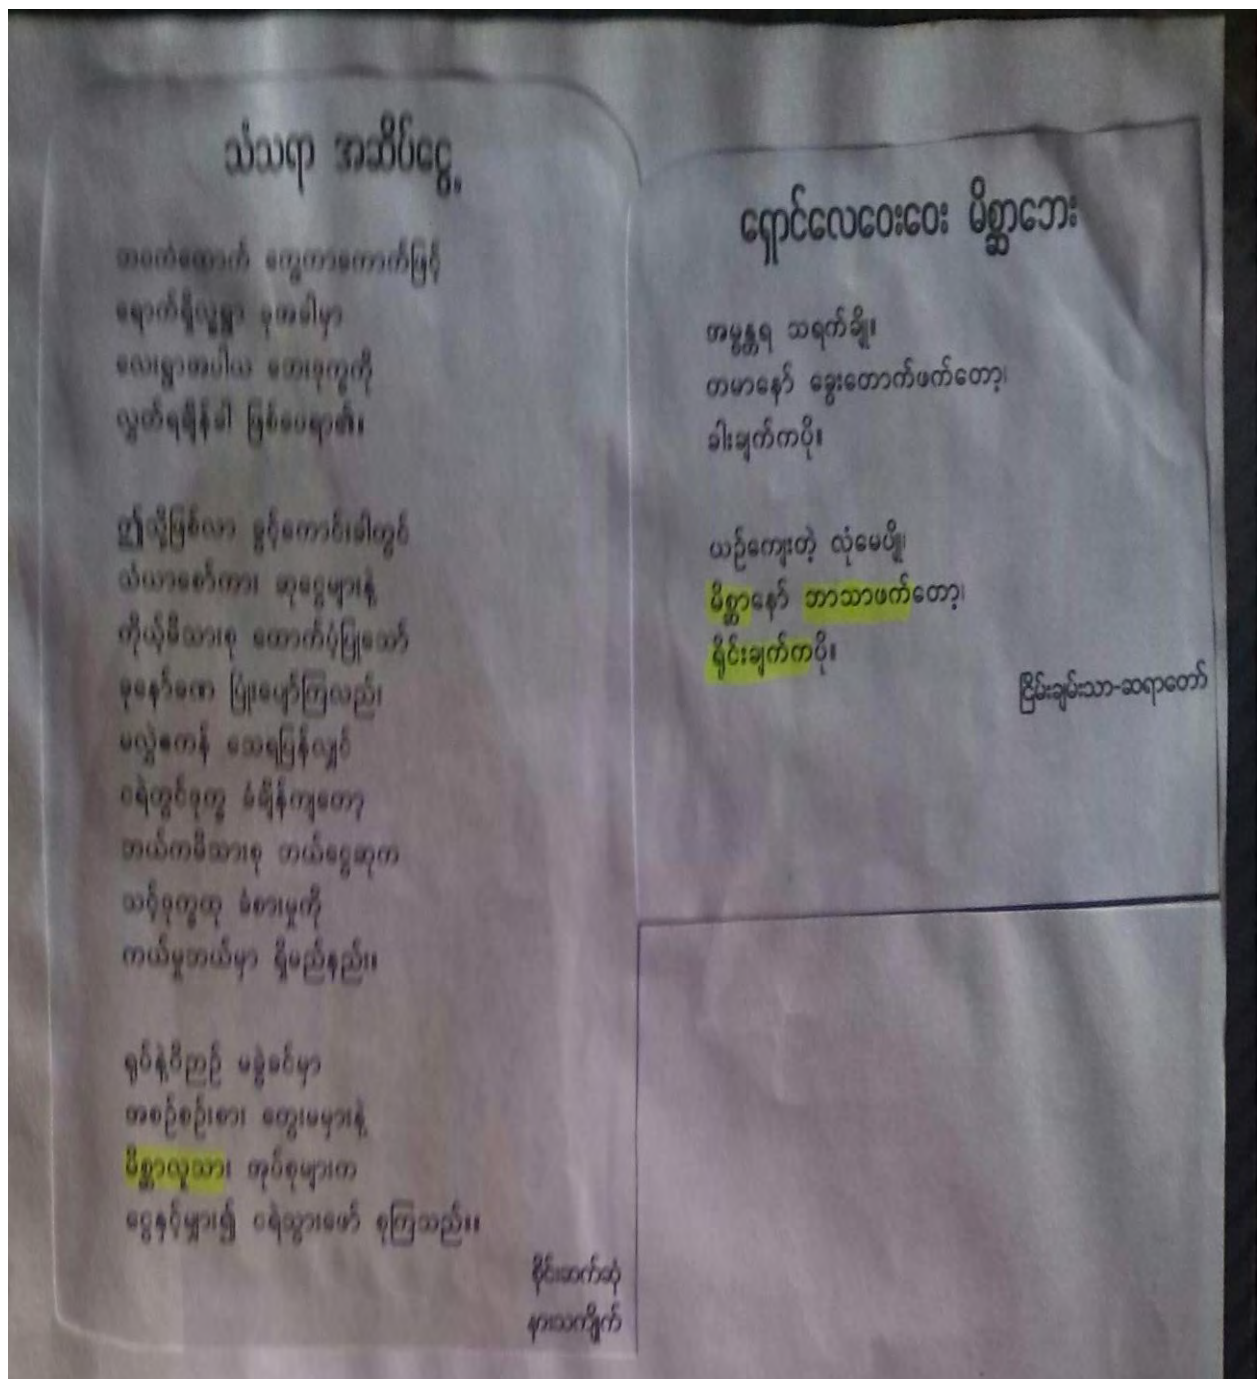 သံသရာ အဆိပ်ငွေ့
ရောက်ရှိလူ့ရွာ ခုအခါမှာ
လေးရွာအပါယ် ဘေးဒုက္ခကို
လွတ်ရချိန်ခါ ဖြစ်ပေရာ၏။
ဤသို့ဖြစ်လာ ခွင့်ကောင်းခါတွင်
သံယာစော်ကား ဆုငွေများနဲ့
ကိုယ့်မိသားစု ထောက်ပံ့ပြုသော်
ခုနော်ခဏ ပြုံးပျော်ကြလည်း
မလွှဲဧကန် သေရပြန်လျှင်
ငရဲတွင်ဒုက္ခ ခံချိန်ကျတော့
ဘယ်ကမိသားစု ဘယ်ငွေဆုက
သင့်ဒုက္ခထု ခံစားမှုကို
ကယ်မှုဘယ်မှာ ရှိမည်နည်း။
ရုပ်နဲ့ဝိညာဉ် မခွဲခင်မှာ
အစဉ်စဉ်းစား တွေးမမှားနဲ့
မိစ္ဆာလူသား အုပ်စုများက
ငွေနှင့်မျှား၍ ငရဲသွားဖော် စုကြသည်။။
စိုင်းဆက်ဆုံ
နားသကျိုက်
ရှောင်လေဝေးဝေး မိစ္ဆာဘေး
အမွန္တရ သရက်ချို။
တမာနော် ခွေးတောက်ဖက်တော့၊
ခါးချက်ကပို။
ယဉ်ကျေးတဲ့ လုံမေပျို၊
မိစ္ဆာနော် ဘာသာဖက်တော့၊
ရိုင်းချက်ကပို။
ငြိမ်းချမ်းသာ-ဆရာတော်